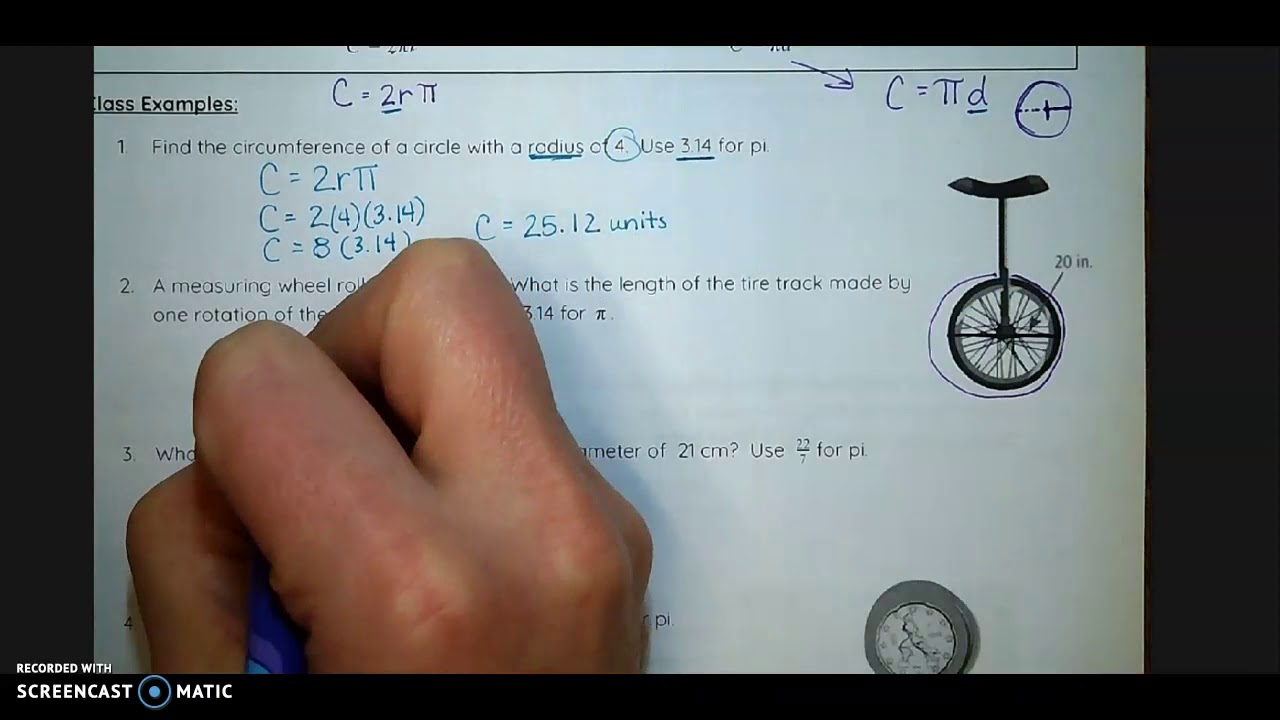 C = 2rπ
C = πd
Class Examples:
1. Find the circumference of a circle with a radius of 4. Use 3.14 for pi.
C = 2rπ
C = 2(4)(3.14)
C = 25.12 units
C = 8(3.14)
20 in.
2. A measuring wheel What is the length of the tire track made by
one rotation of the 3.14 for π.
3. of 21 cm? Use 22/7 for pi.
4 pi.
RECORDED WITH
SCREENCAST MATIC